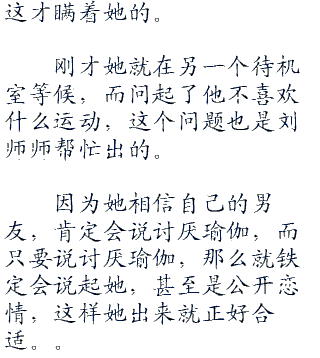 这才瞒着她的。
刚才她就在另一个待机
室等候，而问起了他不喜欢
什么运动，这个问题也是刘
师师帮忙出的。
因为她相信自己的男
友，肯定会说讨厌瑜伽，而
只要说讨厌瑜伽，那么就铁
定会说起她，甚至是公开恋
情，这样她出来就正好合
适。。